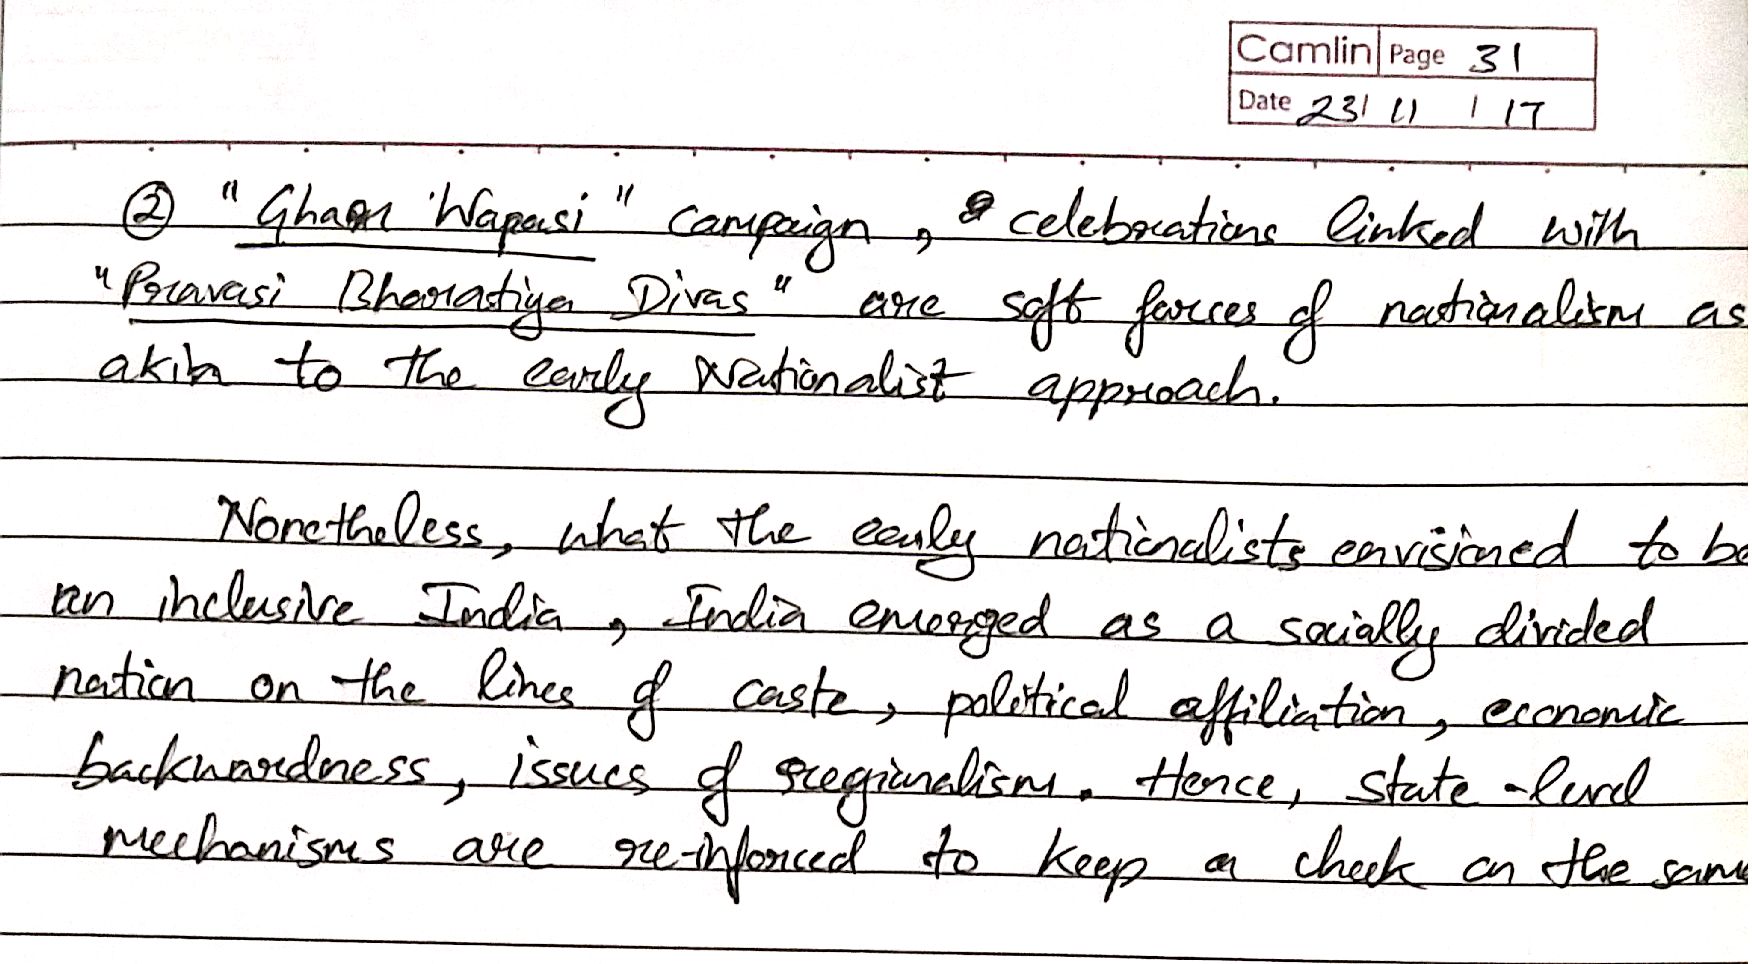 Camlin Page 31
Date 23/ 11 / 17
② "Ghar Wapasi" campaign, celebrations linked with
"Pravasi Bharatiya Divas" are soft forces of nationalism as
akin to the early Nationalist approach.
Nonetheless, what the early nationalists envisioned to be
an inclusive India, India emerged as a socially divided
nation on the lines of caste, political affiliation, economic
backwardness, issues of regionalism. Hence, state-level
mechanisms are re-inforced to keep a check on the same